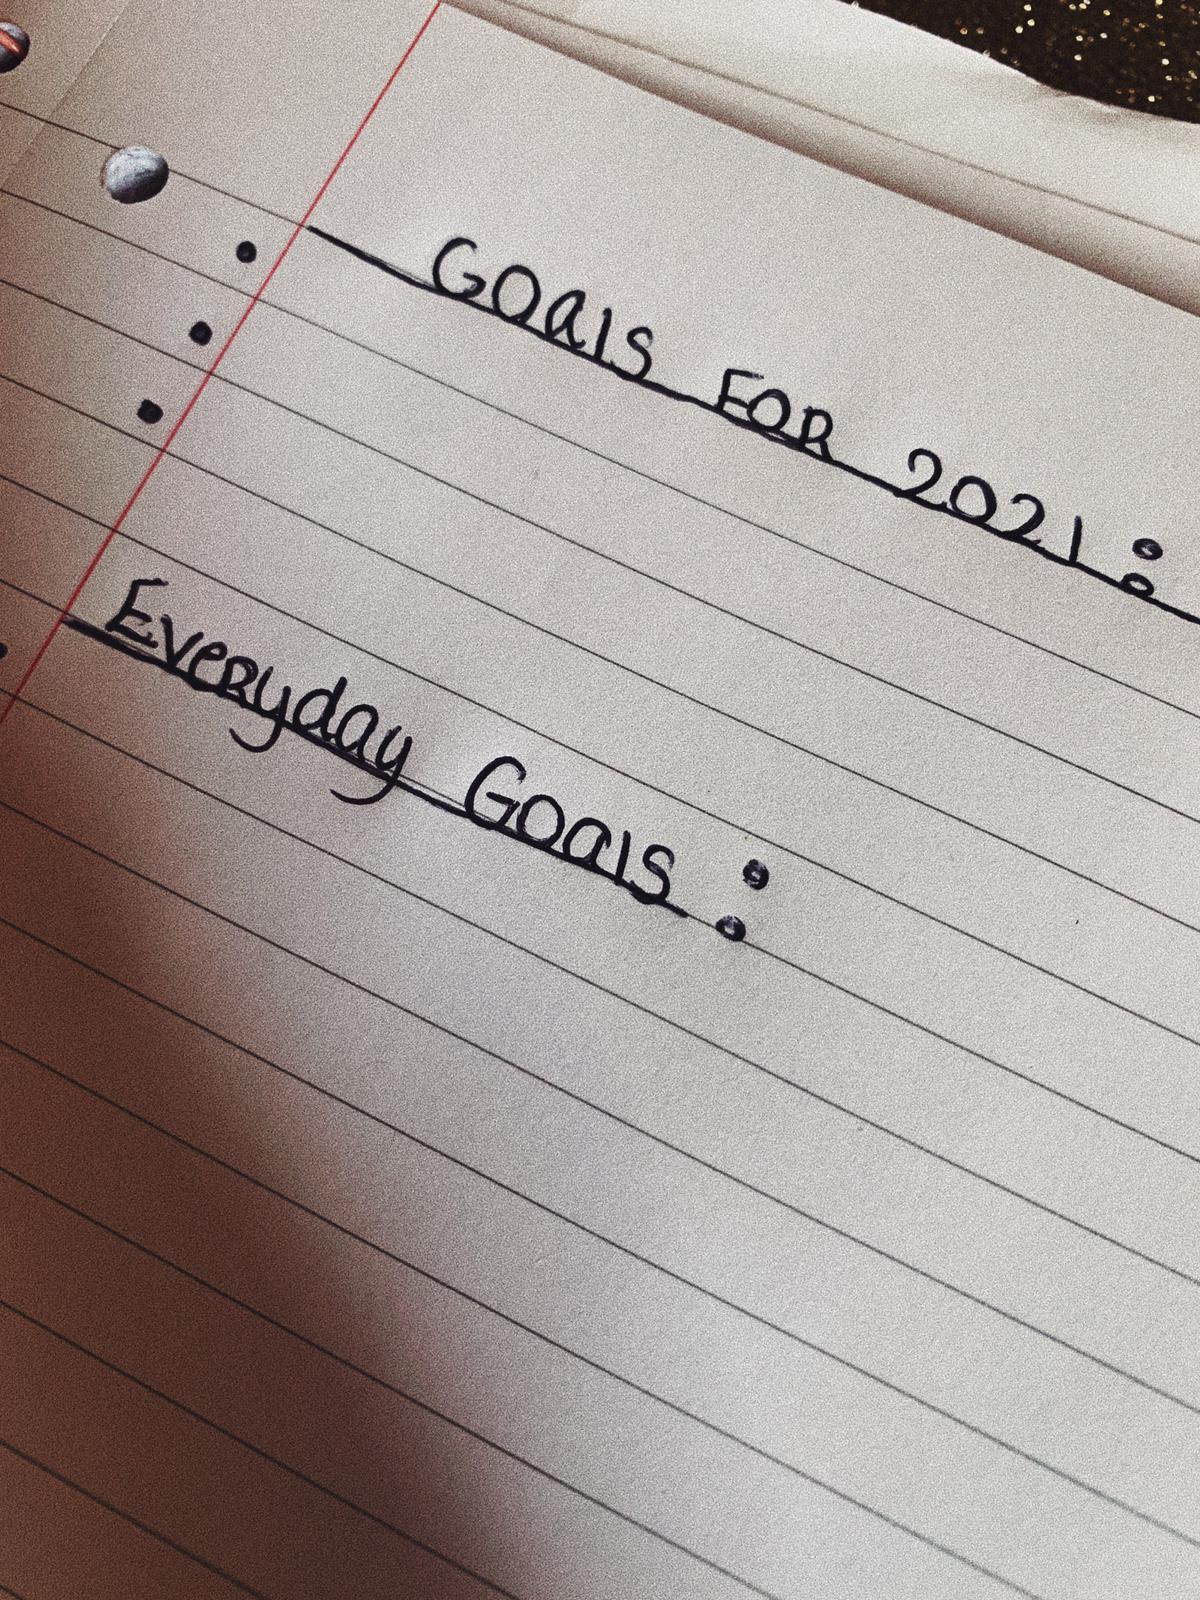 GOalS FOR 2021:
•
•
•
EveRyday Goals:
•